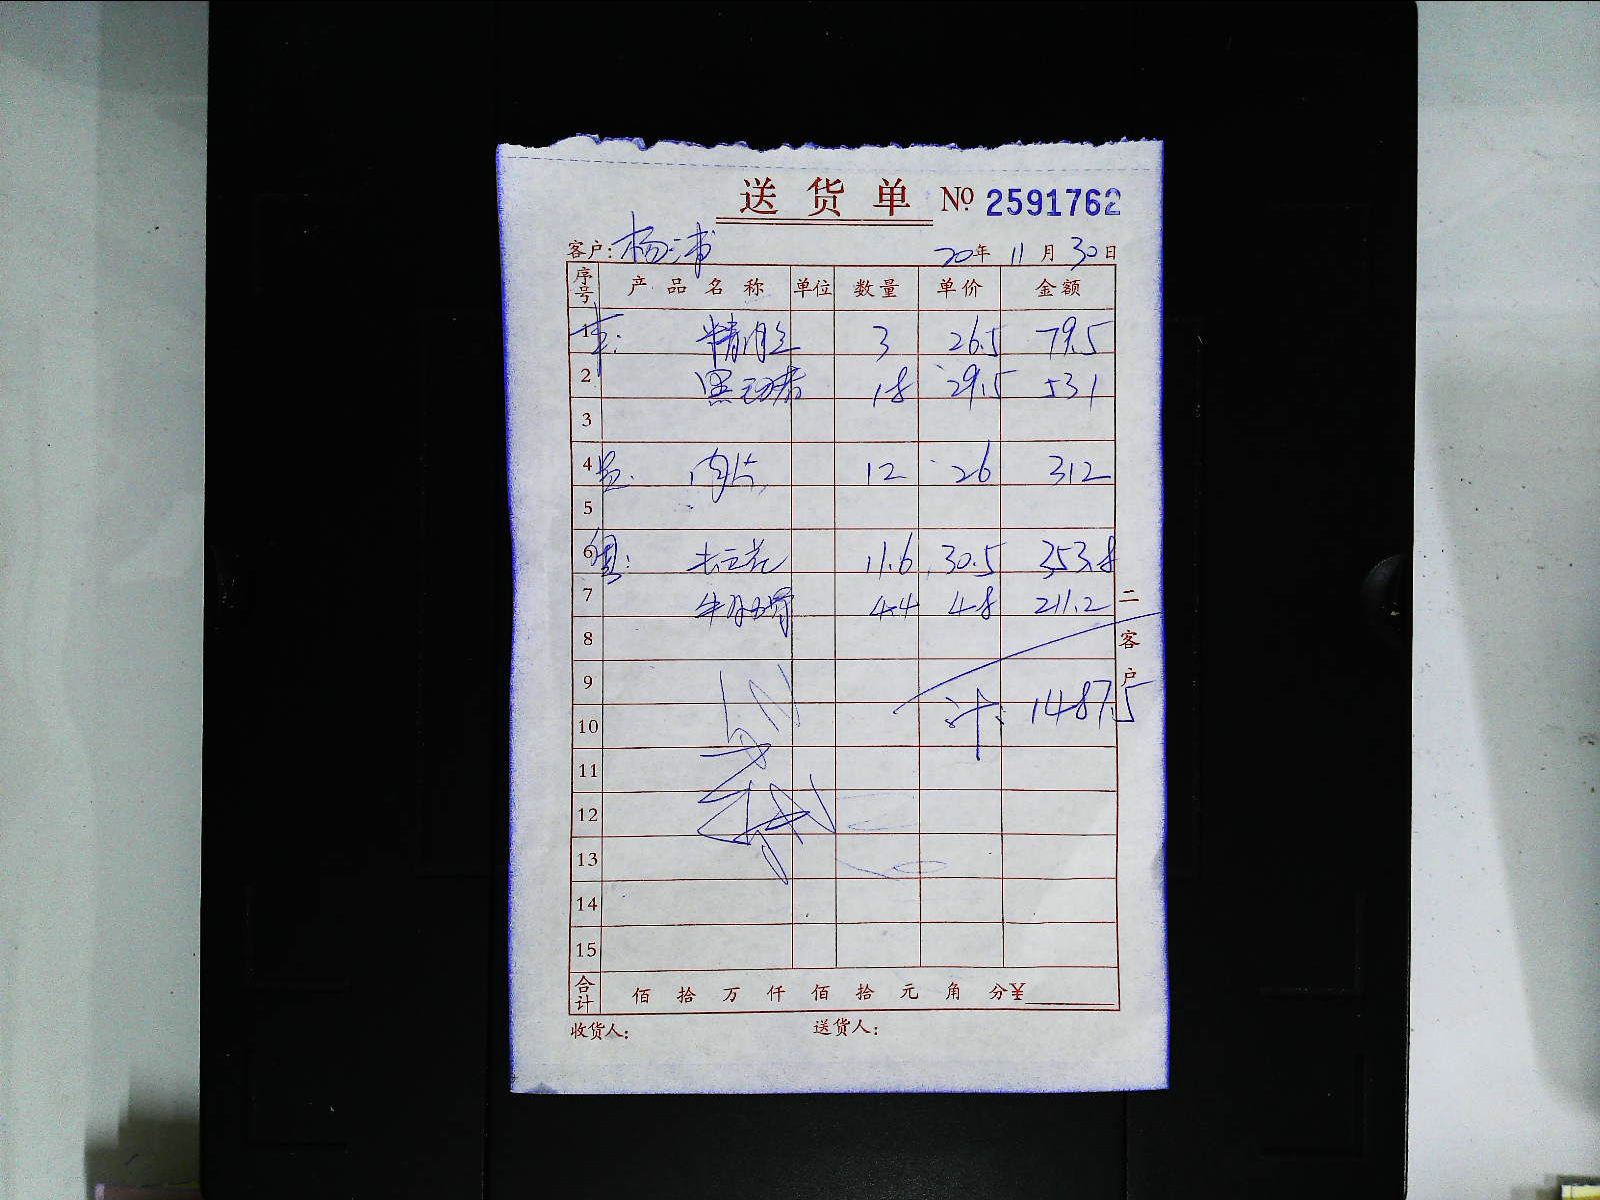 送货单 № 2591762
客户: 杨浦 20年 11月 30日
序号 产品名称 单位 数量 单价 金额
1 精肉 3 26.5 79.5
2 18 29.5 531
3
4 肉片 12 26 312
5
6 11.6 30.5 353.8
7 4.4 48 211.2
8
9
10 计: 1487.5
11
12
13
14
15
合计 佰 拾 万 仟 佰 拾 元 角 分 ¥
收货人: 送货人:
二客户